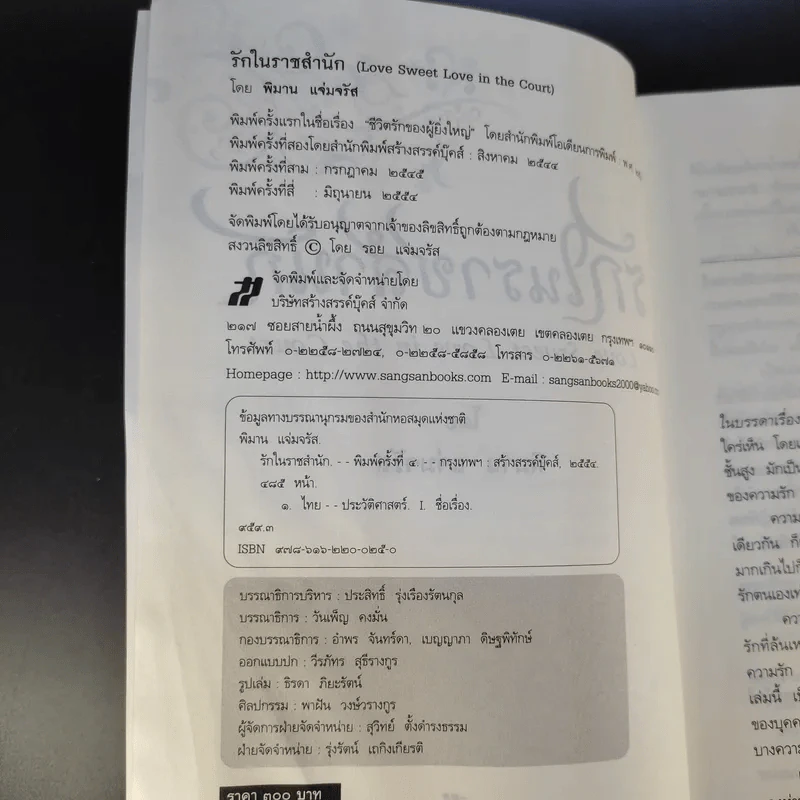 รักในราชสำนัก (Love Sweet Love in the Court)
โดย พิมาน แจ่มจรัส
พิมพ์ครั้งแรกในชื่อเรื่อง "ชีวิตรักของผู้ยิ่งใหญ่" โดยสำนักพิมพ์โอเดียนการพิมพ์ :
พิมพ์ครั้งที่สองโดยสำนักพิมพ์สร้างสรรค์บุ๊คส์ : สิงหาคม ๒๕๔๔
พิมพ์ครั้งที่สาม : กรกฎาคม ๒๕๔๕
พิมพ์ครั้งที่สี่ : มิถุนายน ๒๕๕๔
จัดพิมพ์โดยได้รับอนุญาตจากเจ้าของลิขสิทธิ์ถูกต้องตามกฎหมาย
สงวนลิขสิทธิ์ © โดย รอย แจ่มจรัส
จัดพิมพ์และจัดจำหน่ายโดย
บริษัทสร้างสรรค์บุ๊คส์ จำกัด
๒๑๗ ซอยสายน้ำผึ้ง ถนนสุขุมวิท ๒๐ แขวงคลองเตย เขตคลองเตย กรุงเทพฯ ๑๐๑๑๐
โทรศัพท์ ๐-๒๒๕๘-๒๗๒๔, ๐-๒๒๕๘-๕๘๕๘ โทรสาร ๐-๒๒๖๑-๕๖๗๑
Homepage : http://www.sangsanbooks.com E-mail : sangsanbooks2000@yahoo.co
ข้อมูลทางบรรณานุกรมของสำนักหอสมุดแห่งชาติ
พิมาน แจ่มจรัส.
รักในราชสำนัก. - - พิมพ์ครั้งที่ ๔. - - กรุงเทพฯ : สร้างสรรค์บุ๊คส์, ๒๕๕๔.
๔๘๕ หน้า.
๑. ไทย - - ประวัติศาสตร์. I. ชื่อเรื่อง.
๙๕๙.๓
ISBN ๙๗๘-๖๑๖-๒๒๐-๐๒๕-๐
บรรณาธิการบริหาร : ประสิทธิ์ รุ่งเรืองรัตนกุล
บรรณาธิการ : วันเพ็ญ คงมั่น
กองบรรณาธิการ : อำพร จันทร์ดา, เบญญาภา ดิษฐพิทักษ์
ออกแบบปก : วีรภัทร สุธีรางกูร
รูปเล่ม : ธิรดา ภิยะรัตน์
ศิลปกรรม : พาฝัน วงษ์วรางกูร
ผู้จัดการฝ่ายจัดจำหน่าย : สุวิทย์ ตั้งดำรงธรรม
ฝ่ายจัดจำหน่าย : รุ่งรัตน์ เถกิงเกียรติ
ราคา ๓๐๐ บาท
ในบรรดาเรื่อง
ใคร่เห็น โดย
ชั้นสูง มักเป็
ของความรัก
ความ
เดียวกัน ก็
มากเกินไปก็
รักตนเอง
ควา
รักที่ล้น
ความรัก
เล่มนี้
ของบุคค
บางความ